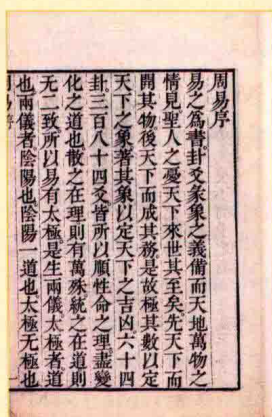 周易序
易之爲書卦爻彖象之義備而天地萬物之
情見聖人之憂天下來世其至矣先天下而
開其物後天下而成其務是故極其數以定
天下之象著其象以定天下之吉凶六十四
卦三百八十四爻皆所以順性命之理盡變
化之道也散之在理則有萬殊統之在道則
无二致所以易有太極是生兩儀太極者道
也兩儀者陰陽也陰陽一道也太極无極也